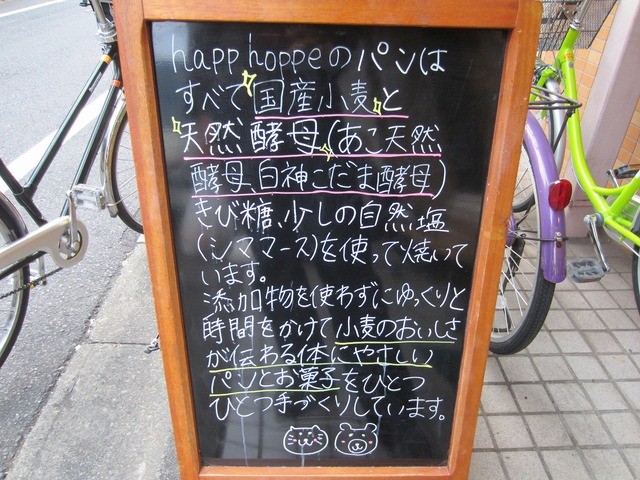 happ hoppeのパンは
すべて国産小麦と
天然酵母(あこ天然
酵母、白神こだま酵母)
きび糖、少しの自然塩
(シママース)を使って焼いて
います。
添加物を使わずにゆっくりと
時間をかけて小麦のおいしさ
が伝わる体にやさしい
パンとお菓子をひとつ
ひとつ手づくりしています。